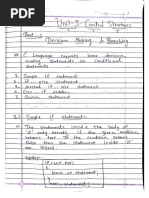 Unit-3-Control Structures
Part-1
Decision Making & Branching
C Language supports some decision
making statements or conditional
statements
1. Simple if statement
2. If else statement
3. Nested if statement
4. else if ladder
5. Switch statement
1. Simple if statement:-
The statements inside the body of
"if" only execute if the given condition
returns true. If the condition returns
false then the statements inside "if"
are skipped.
Syntax:
if (condition)
{
Block of statement;
}
next statement;